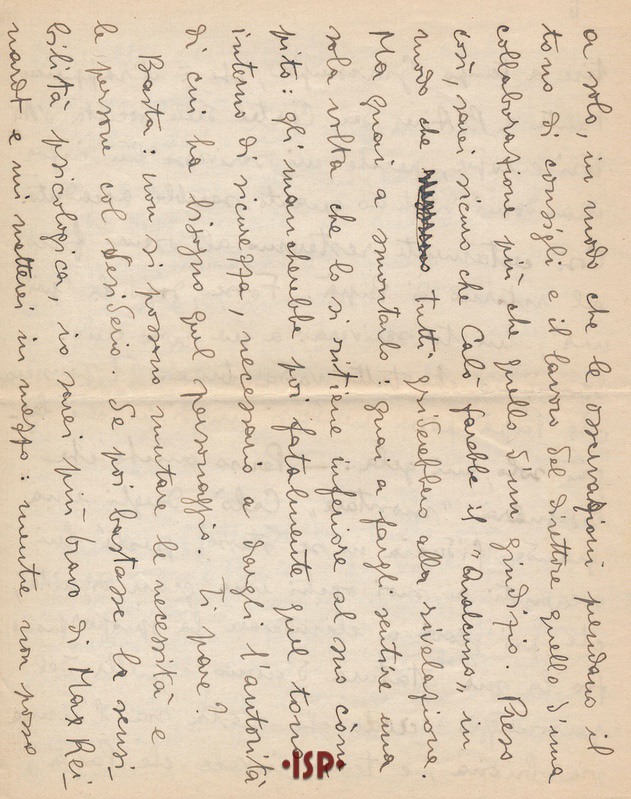 a solo, in modo che le osservazioni pendano il
tono di consigli e il lavoro del direttore quello d'una
collaborazione più che quello d'un giudizio. Preso
così, sei sicuro che Calò farebbe il "Arduino" in
modo che tutti griderebbero alla rivelazione.
Ma guai a smontarlo: guai a fargli sentire una
sola volta che lo si ritiene inferiore al suo com-
pito: gli mancherebbe poi fatalmente quel tono
interno di sicurezza, necessario a dargli l'autorità
di cui ha bisogno quel personaggio. Ti pare?
Basta: non si possono mutare le necessità e
le persone col desiderio. Se poi bastasse la sensi-
bilità psicologica, io sarei più bravo di Max Rei-
nardt e mi metterei in mezzo: mentre non posso
·ISP·